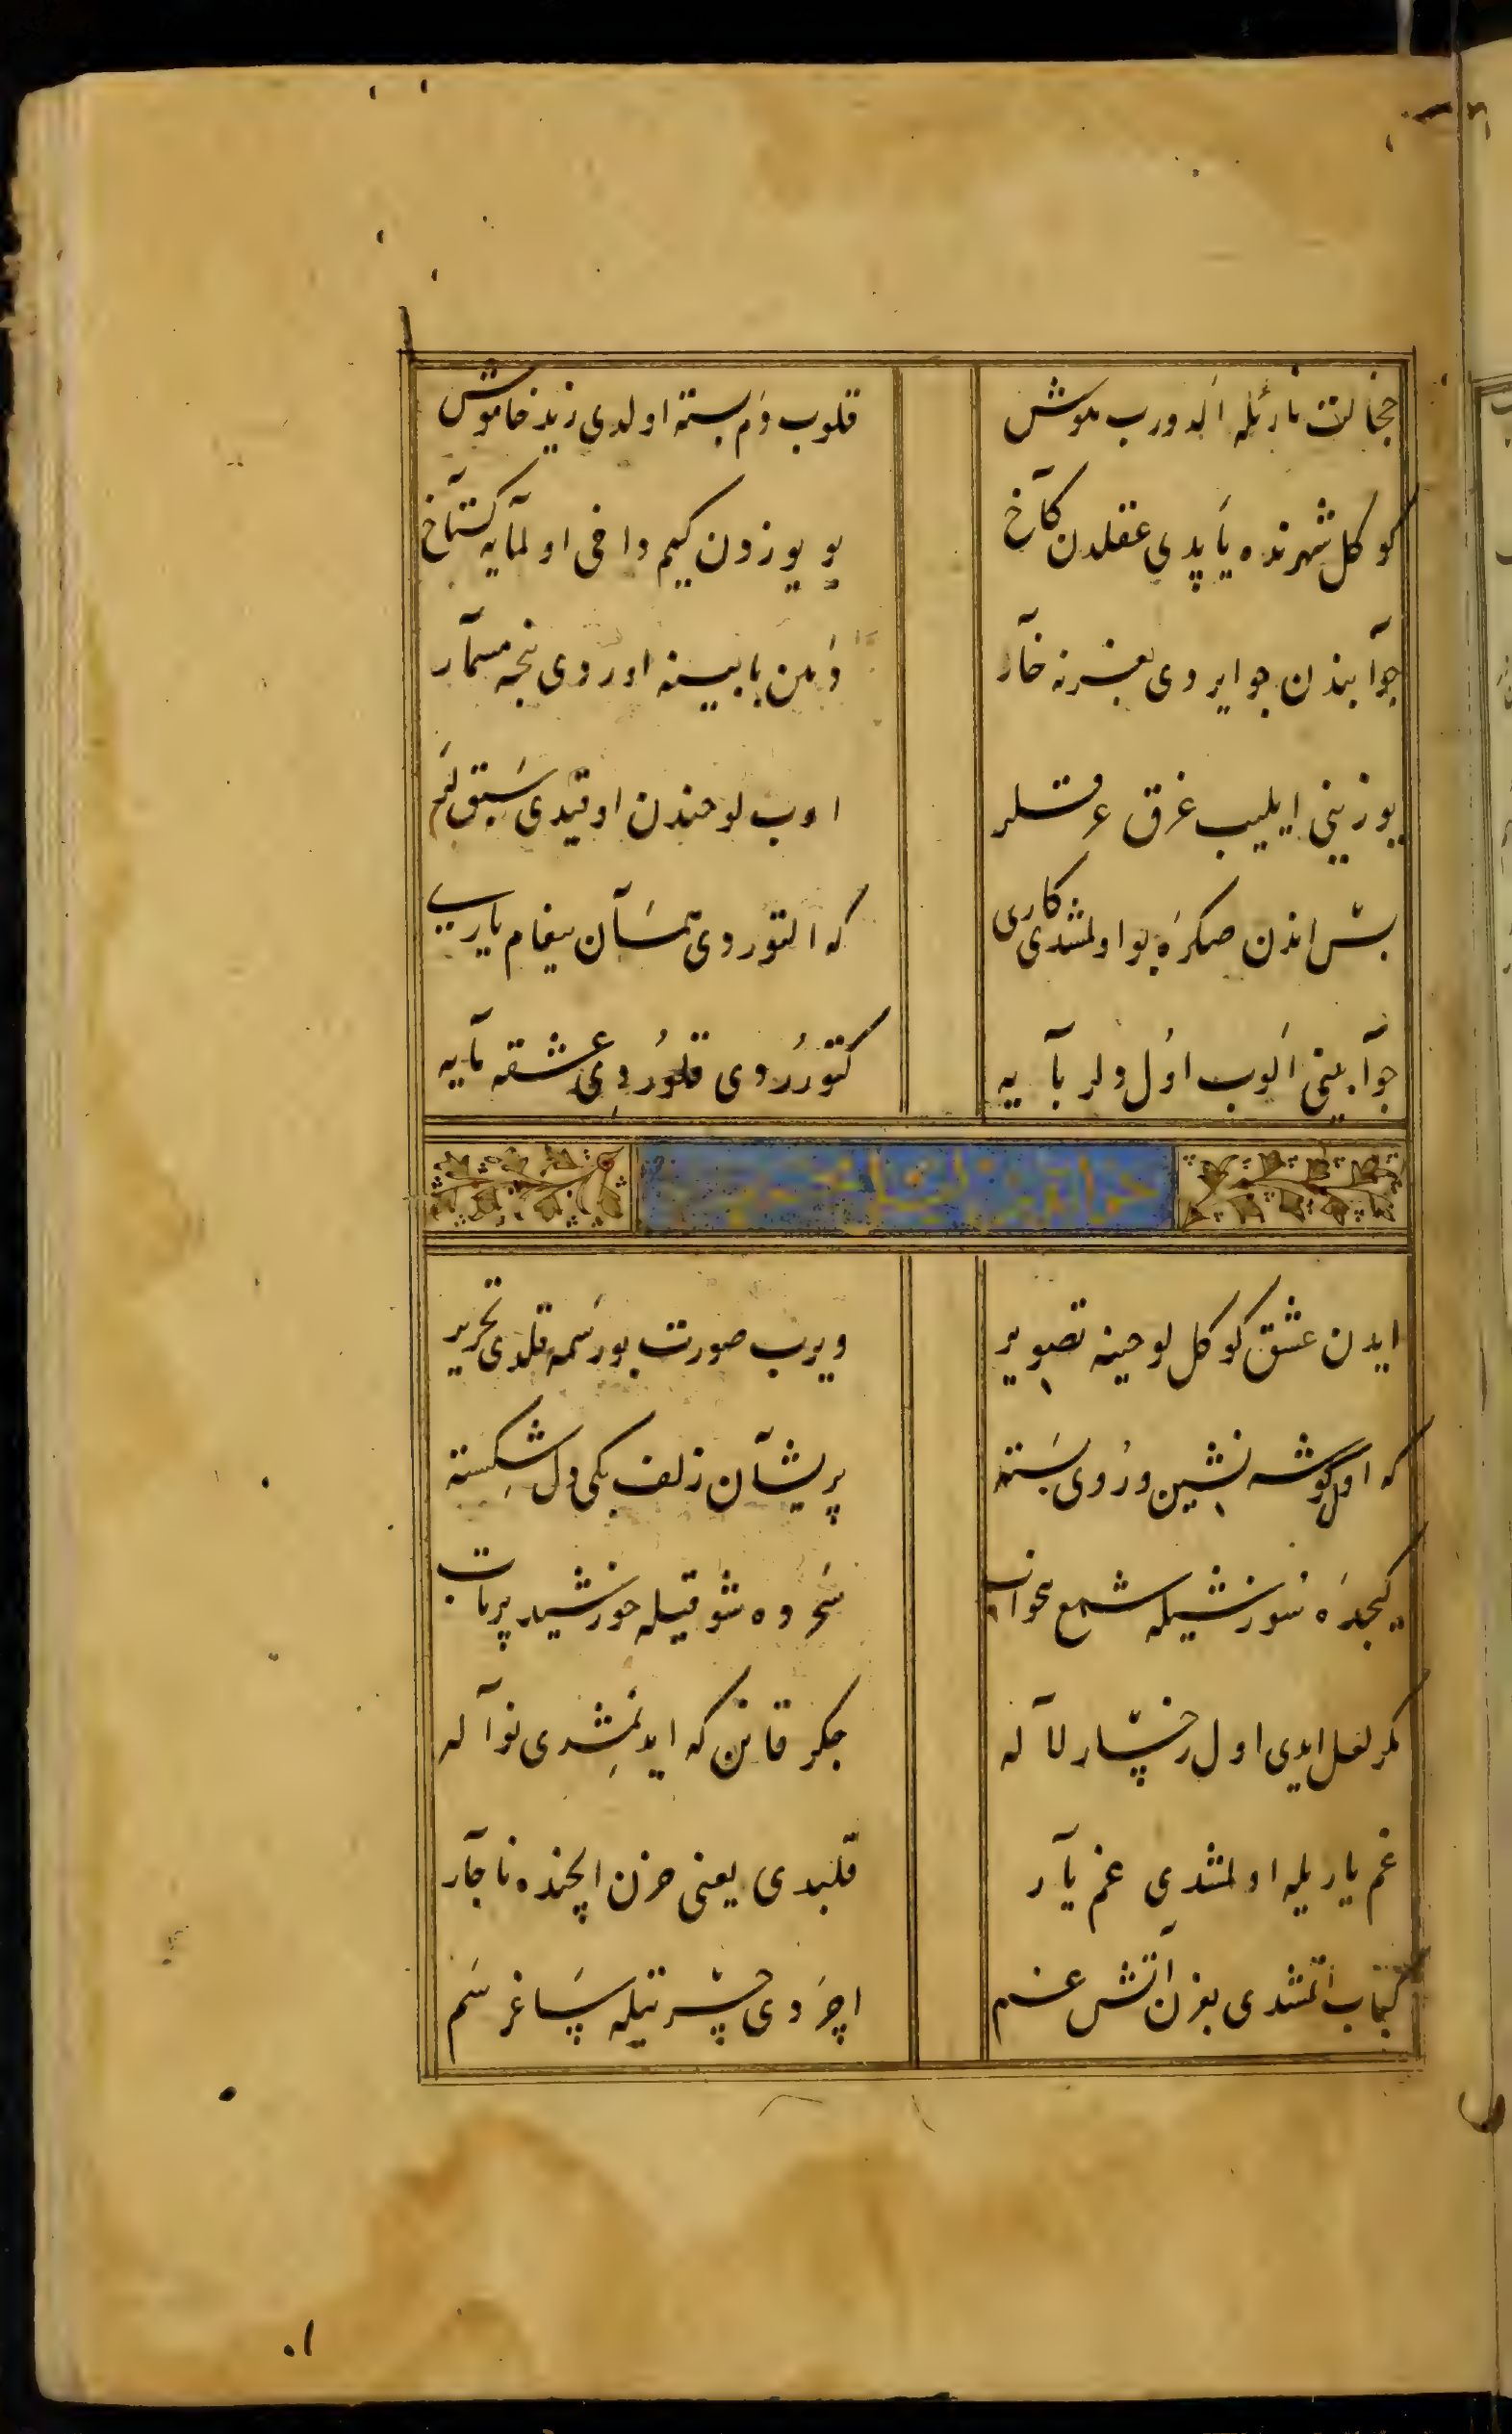 خجالت نارئله الدورب هوش قلوب دم بسته اولدی زید خاموش
کوکل شهرنده یاپدی عقلدن کآخ بو یوزدن کیم داخی اولمایه کستآخ
جوآبندن جو ایردی بغرنه خآر دهن بابینه اوردی نیجه مسمآر
یوزینی ایلیب غرق اوب لوحندن اوقیدی سبق
بش اندن صکره بو اولمشدی کاری که التوردی پیغام یاری
جوآبینی الوب اول دلربآیه کتوررودی قلوردی عشقه مآیه
ایدن عشق کوکل لوحینه تصویر ویرب صورت بو رسمه قلدی تحریر
که اول کوشه نشین و روی بسته پریشآن زلف بکی دل شکسته
کیجده سوزشیله شمع سحرده شوقیله خورشید پرتاب
مکر لعل ایدی اول رخسار لآله جکر قانن که ایدنمشدی نوآله
غم یاریله اولمشدی غم یآر قلبدی یعنی حزن ایچنده ناچآر
کباب اتمشدی بغرن آتش غم اچردی حسرتیله ساغر سم